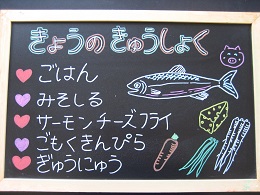 きょうの きゅうしょく
ごはん
みそしる
サーモンチーズフライ
ごもくきんぴら
ぎゅうにゅう